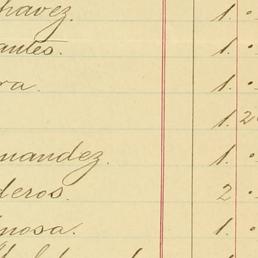 havez. 1.
antes. 1.
ra. 1.
1. 2
nandez. 1.
deros. 2
inosa. 1.